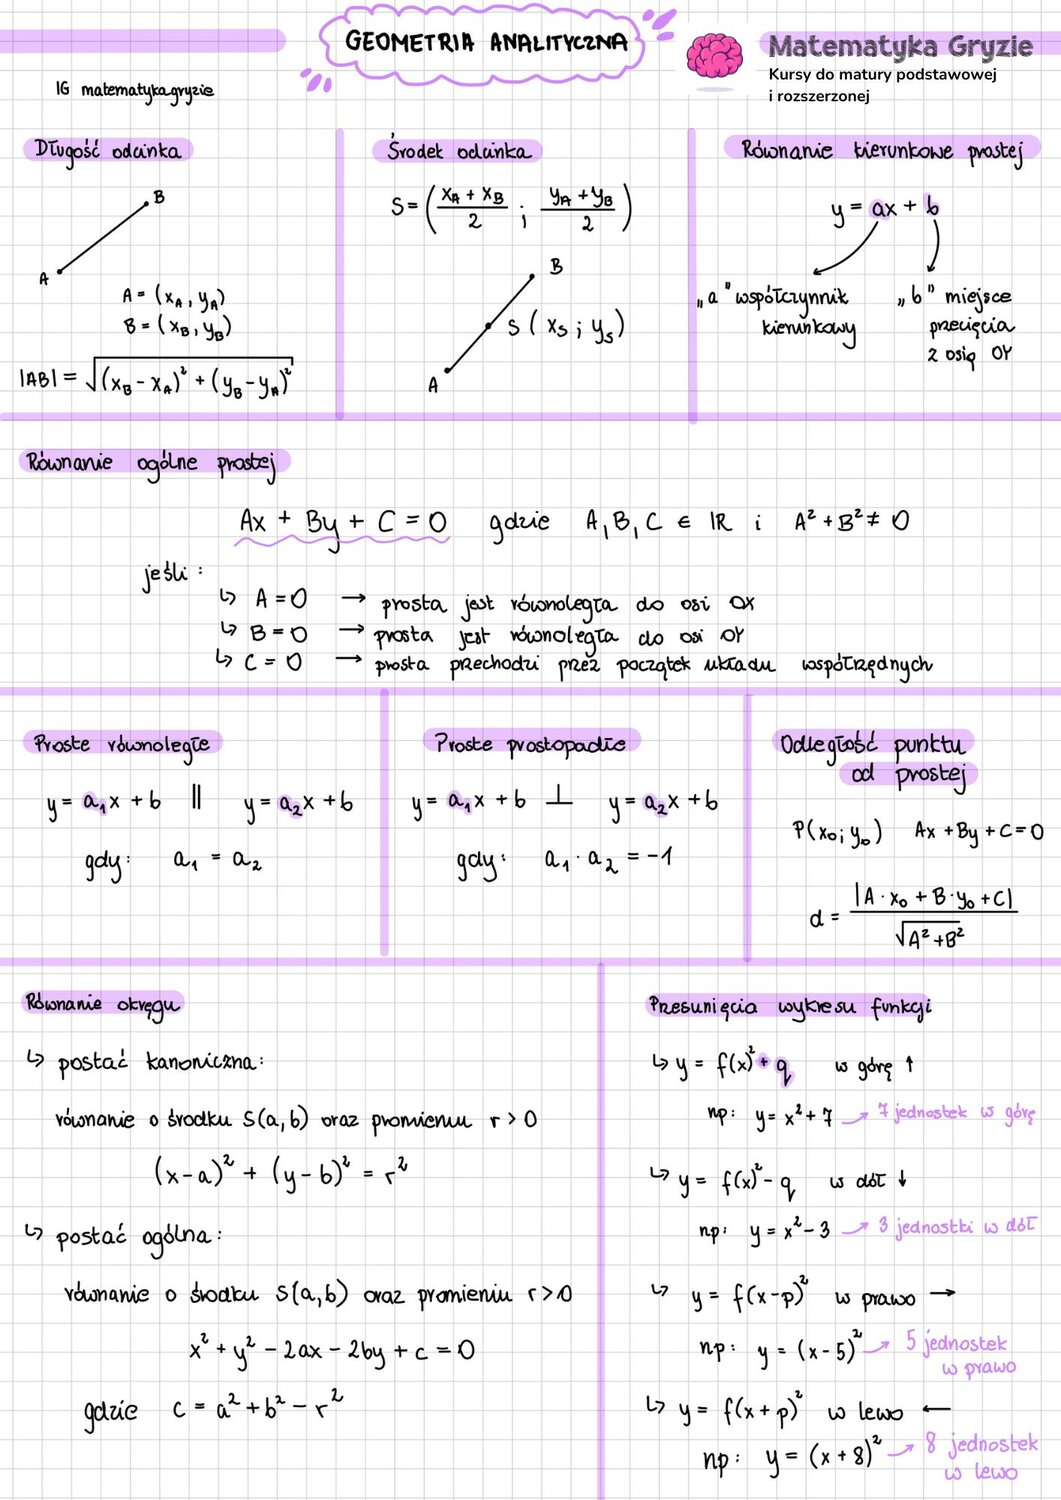 GEOMETRIA ANALITYCZNA
Matematyka Gryzie
Kursy do matury podstawowej
i rozszerzonej
IG matematyka.gryzie
Długość odcinka
B
A
A = (x_A, y_A)
B = (x_B, y_B)
|AB| = √((x_B - x_A)² + (y_B - y_A)²)
Środek odcinka
S = ((x_A + x_B)/2 ; (y_A + y_B)/2)
B
S (x_S ; y_S)
A
Równanie kierunkowe prostej
y = ax + b
„a" współczynnik
kierunkowy
„b" miejsce
przecięcia
z osią OY
Równanie ogólne prostej
Ax + By + C = 0 gdzie A, B, C ∈ ℝ i A² + B² ≠ 0
jeśli :
↳ A = 0 → prosta jest równoległa do osi OX
↳ B = 0 → prosta jest równoległa do osi OY
↳ C = 0 → prosta przechodzi przez początek układu współrzędnych
Proste równoległe
y = a₁x + b || y = a₂x + b
gdy: a₁ = a₂
Proste prostopadłe
y = a₁x + b ⊥ y = a₂x + b
gdy: a₁ · a₂ = -1
Odległość punktu
od prostej
P(x₀; y₀) Ax + By + C = 0
d = |A · x₀ + B · y₀ + C| / √(A² + B²)
Równanie okręgu
↳ postać kanoniczna:
równanie o środku S(a,b) oraz promieniu r > 0
(x-a)² + (y-b)² = r²
↳ postać ogólna:
równanie o środku S(a,b) oraz promieniu r > 0
x² + y² - 2ax - 2by + c = 0
gdzie c = a² + b² - r²
Przesunięcia wykresu funkcji
↳ y = f(x)² + q w górę ↑
np: y = x² + 7 → 7 jednostek w górę
↳ y = f(x)² - q w dół ↓
np: y = x² - 3 → 3 jednostki w dół
↳ y = f(x-p)² w prawo →
np: y = (x-5)² → 5 jednostek
w prawo
↳ y = f(x+p)² w lewo ←
np: y = (x+8)² → 8 jednostek
w lewo